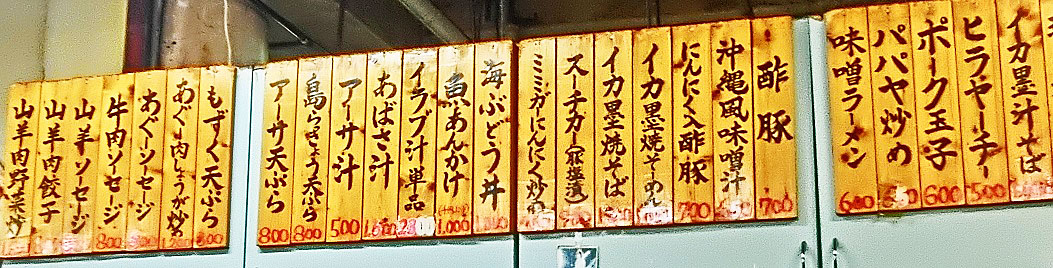 イカ墨汁そば
ヒラヤーチー 500
ポーク玉子 600
パパヤ炒め
味噌ラーメン 600
酢豚 700
沖縄風味噌汁
にんにく入酢豚 700
イカ墨焼そーめん
イカ墨焼そば
スーチカー(豚塩漬)
ミミガーにんにく炒め
海ぶどう丼
魚あんかけ 1,000
イラブ汁単品
あばさ汁
アーサ汁 500
島らっきょう天ぷら 800
アーサ天ぷら 800
もずく天ぷら
あぐー肉しょうが炒め
あぐーソーセージ
牛肉ソーセージ 800
山羊ソーセージ
山羊肉餃子
山羊肉野菜炒